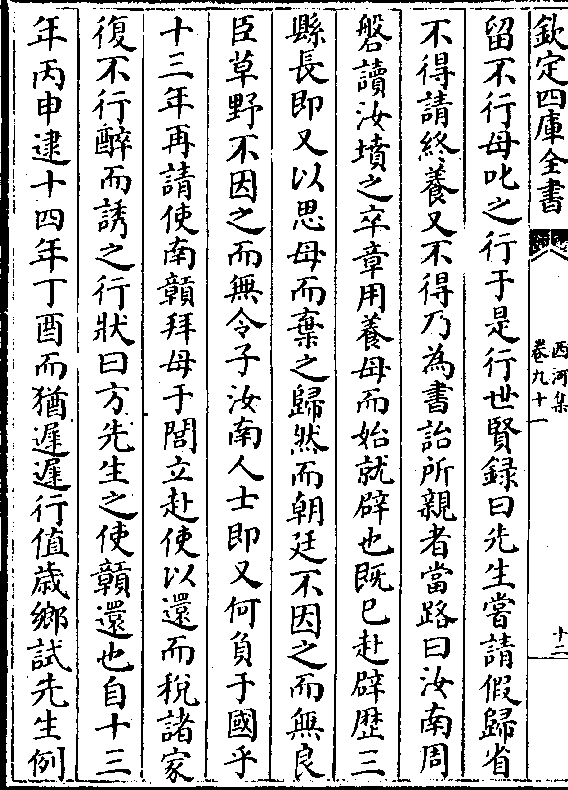 欽定四庫全書
西河集
卷九十一
十二
留不行母叱之行于是行世賢録曰先生嘗請假歸省
不得請終養又不得乃為書詒所親者當路曰汝南周
磐讀汝墳之卒章用養母而始就辟也既已赴辟歴三
縣長即又以思母而棄之歸然而朝廷不因之而無良
臣草野不因之而無令子汝南人士即又何負于國乎
十三年再請使南贛拜母于閭立赴使以還而稅諸家
復不行醉而誘之行狀曰方先生之使贛還也自十三
年丙申逮十四年丁酉而猶遲遲行值歲鄉試先生例